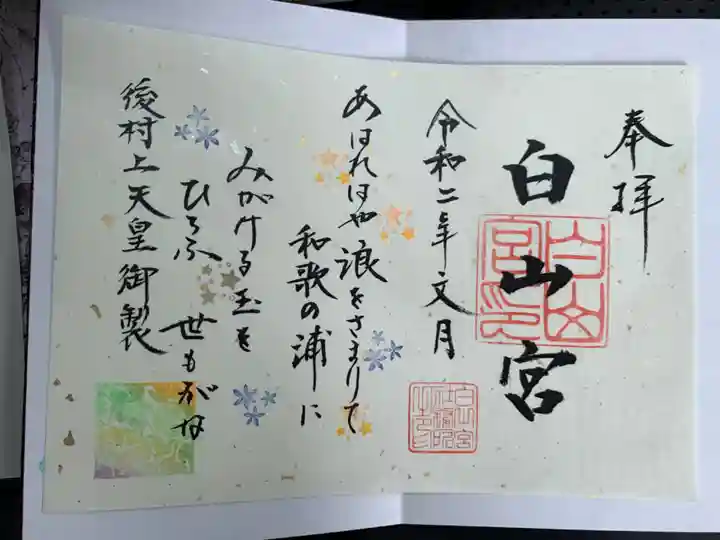 奉拝
白山宮
白山宮印
令和二年文月
白山宮
あはれはや浪をさまりて
和歌の浦に
みがける玉を
ひろふ世もがな
後村上天皇御製